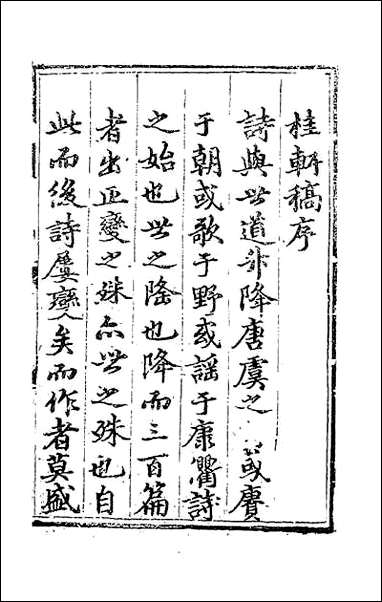 桂軒稿序
詩與世道升降唐虞之 或賡
于朝或歌于野或謡于康衢詩
之始也世之隆也降而三百篇
者出正變之殊亦世之殊也自
此而後詩屢變矣而作者莫盛